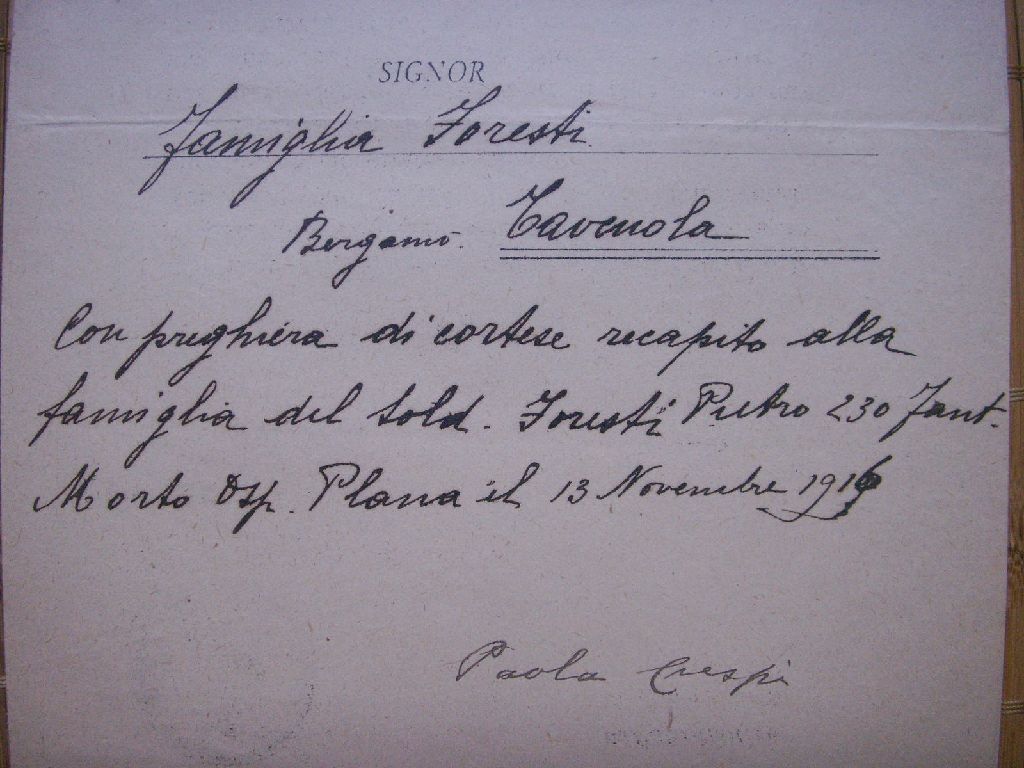 SIGNOR
Famiglia Foresti
Bergamo. Tavenola
Con preghiera di cortese recapito alla
famiglia del sold. Foresti Pietro 230 Fant.
Morto Osp. Plana il 13 Novembre 1916
Paola Crespi